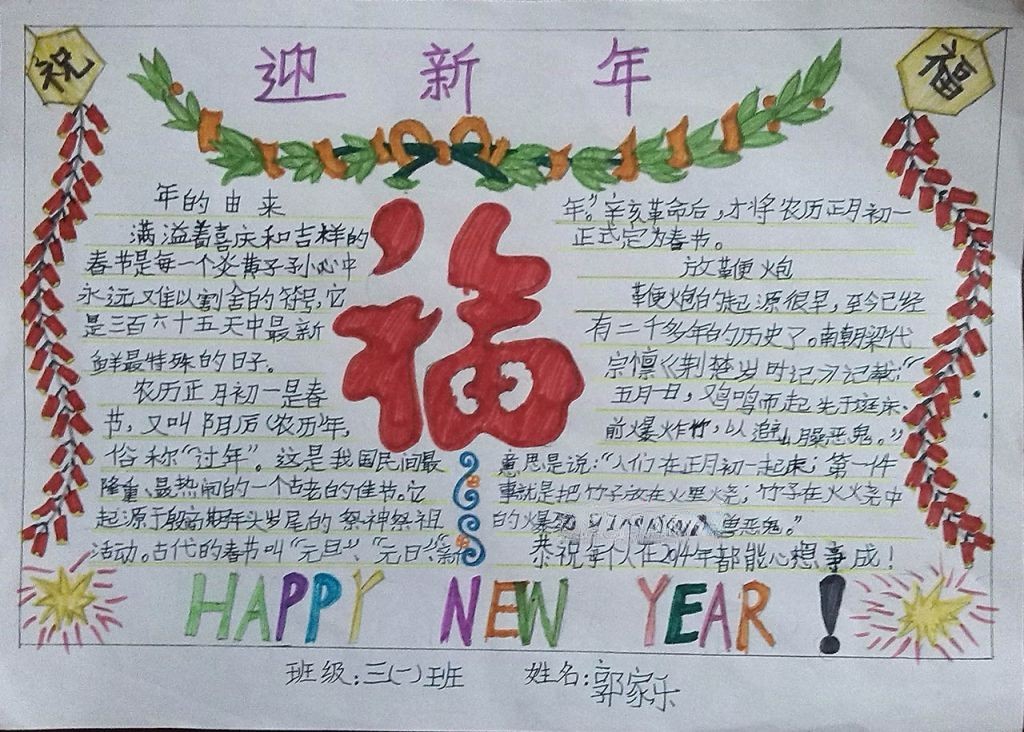 祝
迎新年
福
年的由来
满溢着喜庆和吉祥的
春节是每一个炎黄子孙心中
永远难以割舍的符号,它
是三百六十五天中最新
鲜最特殊的日子。
农历正月初一是春
节,又叫阴历(农历)年,
俗称“过年”。这是我国民间最
隆重、最热闹的一个古老的佳节。它
起源于殷商期年头岁尾的祭神祭祖
活动。古代的春节叫“元旦”、“元日”、“新
福
年”。辛亥革命后,才将农历正月初一
正式定为春节。
放鞭炮
鞭炮的起源很早,至今已经
有二千多年的历史了。南朝梁代
宗懔《荆楚岁时记》记载:“
五月一日,鸡鸣而起先于庭床
前爆炸竹,以避山臊恶鬼。”
意思是说:“人们在正月初一起床;第一件
事就是把竹子放在火里烧,竹子在火火烧中
的爆 兽恶鬼。”
恭祝每个人在2014年都能心想事成!
HAPPY NEW YEAR!
班级:三(一)班 姓名:郭家乐